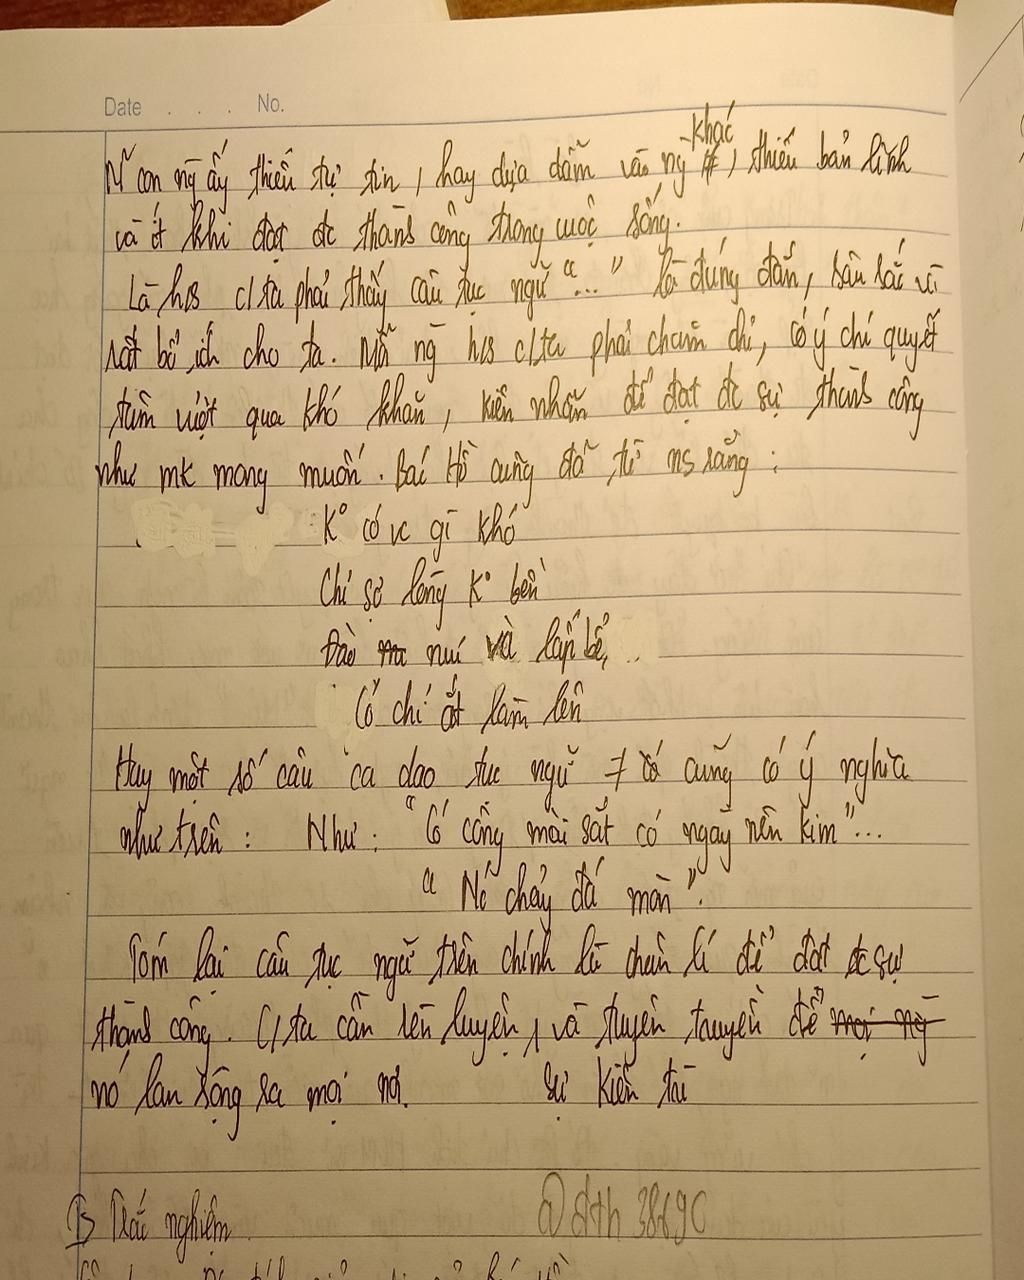 Date . . . No.
N~ con ng` ấy thiếu tự tin, hay dựa dẫm vào ng` khác, thiếu bản lĩnh
và ít khi đạt đc thành công trong cuộc sống.
Là hs c/ta phải thấy câu tục ngữ "..." là đúng đắn, sâu sắc và
rất bổ ích cho ta. Mỗi ng` hs c/ta phải chăm chỉ, có ý chí quyết
tâm vượt qua khó khăn, kiên nhẫn để đạt đc sự thành công
như mk mong muốn. Bác Hồ cũng đã từ ns rằng :
K° có vc gì khó
Chỉ sợ lòng K° bền
Đào núi và lấp bể
Có chí ắt làm lên
Hay một số câu ca dao tục ngữ ≠ cũng có ý nghĩa
như trên : Như : "Có công mài sắt có ngày nên kim"...
"Nc chảy đá mòn".
Tóm lại câu tục ngữ trên chính là chân lí để đạt đc sự
thành công. C/ta cần rèn luyện, và tuyên truyền để
nó lan rộng ra mọi nơi. sự kiên trì
I> Trắc nghiệm
@dth 38690